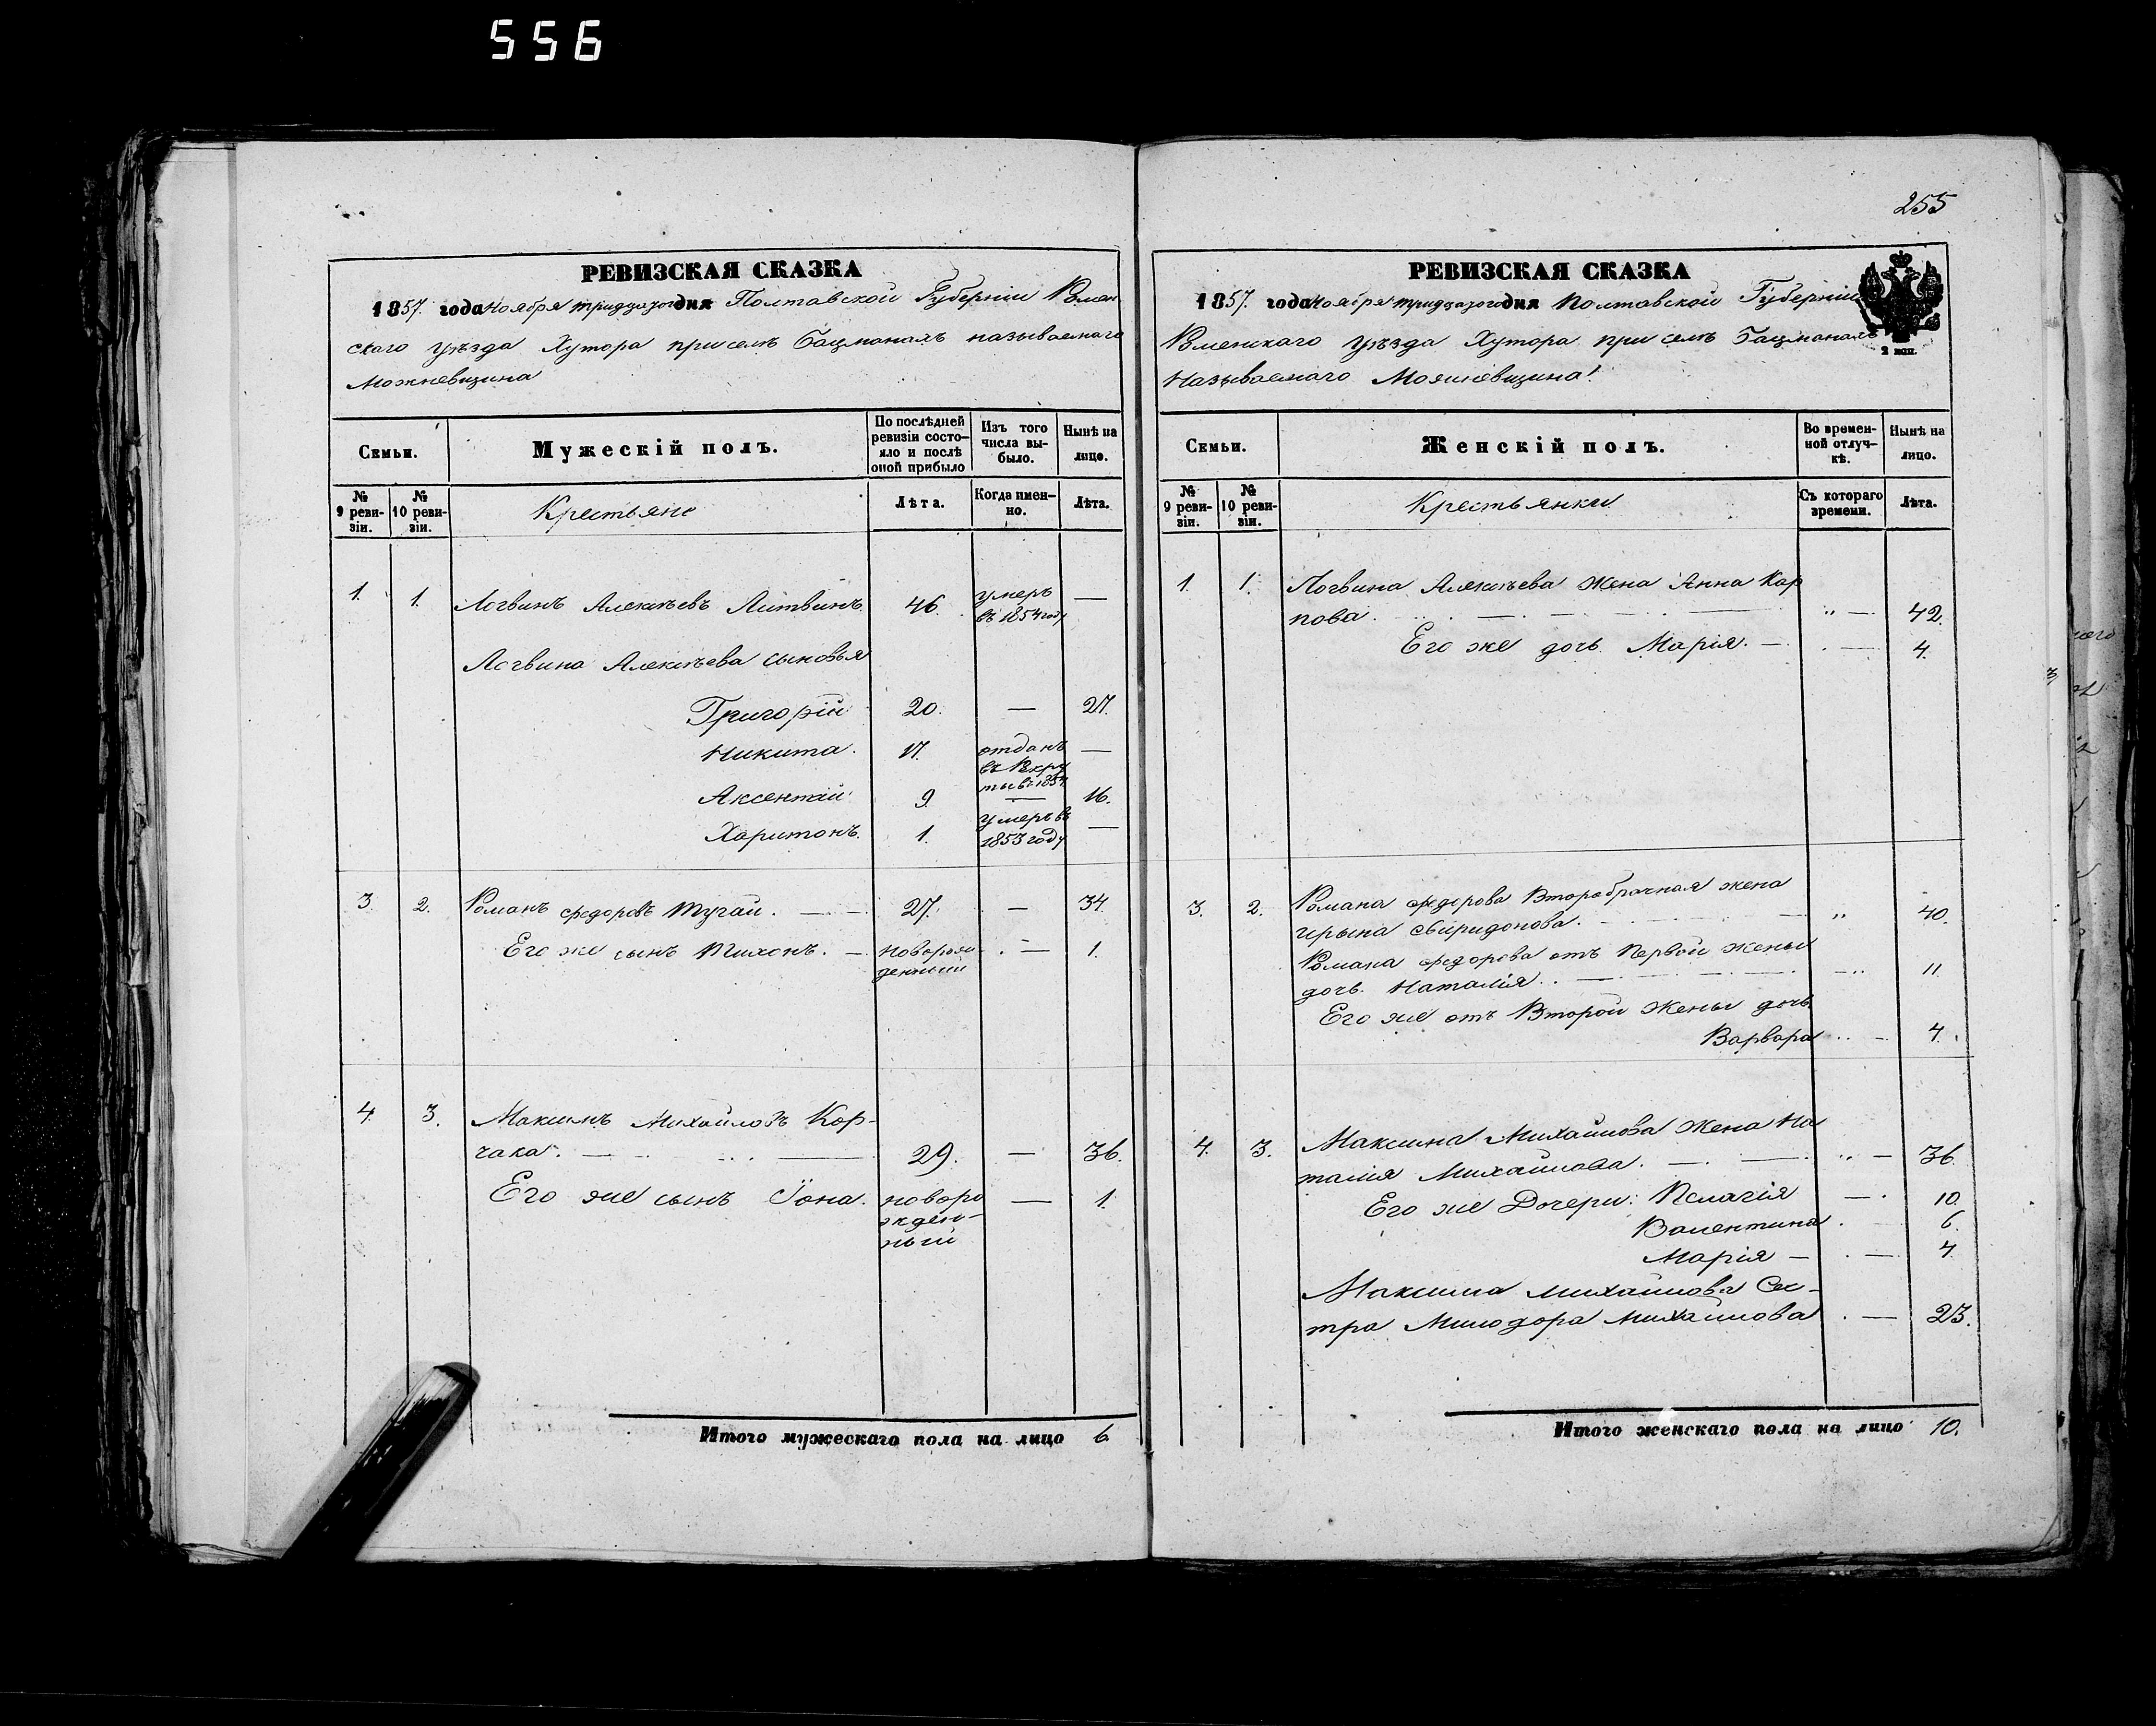 556
255
РЕВИЗСКАЯ СКАЗКА
1857. года Ноября тридцатого дня Полтавской Губерніи Ромен
скаго уѣзда Хутора при селѣ Бацманахъ называемаго
Можневщина
Семьи.
Мужескій полъ.
По послѣдней
ревизіи состо-
яло и послѣ
оной прибыло
Изъ того
числа вы-
было.
Нынѣ на
лицо.
№
9 реви-
зіи.
№
10 реви-
зіи.
Крестьяне
Лѣта.
Когда имен-
но.
Лѣта.
1. 1. Логвинъ Алексѣевъ Литвинъ. 46. умеръ —
въ 1854 году
Логвина Алексѣева сыновья
Григорій 20. — 27.
Никита. 17. отданъ —
въ Рекру
ты въ 1854
Аксентій 9. — 16.
Харитонъ. 1. умеръ въ —
1853 году
3. 2. Романъ Федоровъ Тугай. — 27. — 34.
Его же сынъ Тихонъ. — новорож- — 1.
денный
4. 3. Максимъ Михайловъ Кор-
чака. — 29. — 36.
Его же сынъ Іона. новоро — 1.
жден-
ный
Итого мужескаго пола на лицо 6.
РЕВИЗСКАЯ СКАЗКА
1857. года Ноября тридцатого дня Полтавской Губерніи
Роменскаго уѣзда Хутора при селѣ Бацманахъ
Называемаго Можневщина.
2 коп.
Семьи.
Женскій полъ.
Во времен-
ной отлуч-
кѣ.
Нынѣ на
лицо.
№
9 реви-
зіи.
№
10 реви-
зіи.
Крестьянки
Съ котораго
времени.
Лѣта.
1. 1. Логвина Алексѣева жена Анна Кар
пова. — „ — 42.
Его же дочь Марія. — — 4.
3. 2. Романа Федорова Второбрачная жена
Ирына Свиридонова. — „ 40.
Романа Федорова отъ Первой жены
дочь Наталія. — — 11
Его же отъ Второй Жены дочь
Варвара — 4.
4. 3. Максима Михайлова Жена На
талія Михайлова. — „ — 36.
Его же Дочери: Пелагія — 10.
Валентина 6.
Марія — — 4
Максима Михайлова Сес-
тра Милодора Михайлова — 23.
Итого женскаго пола на лицо 10.